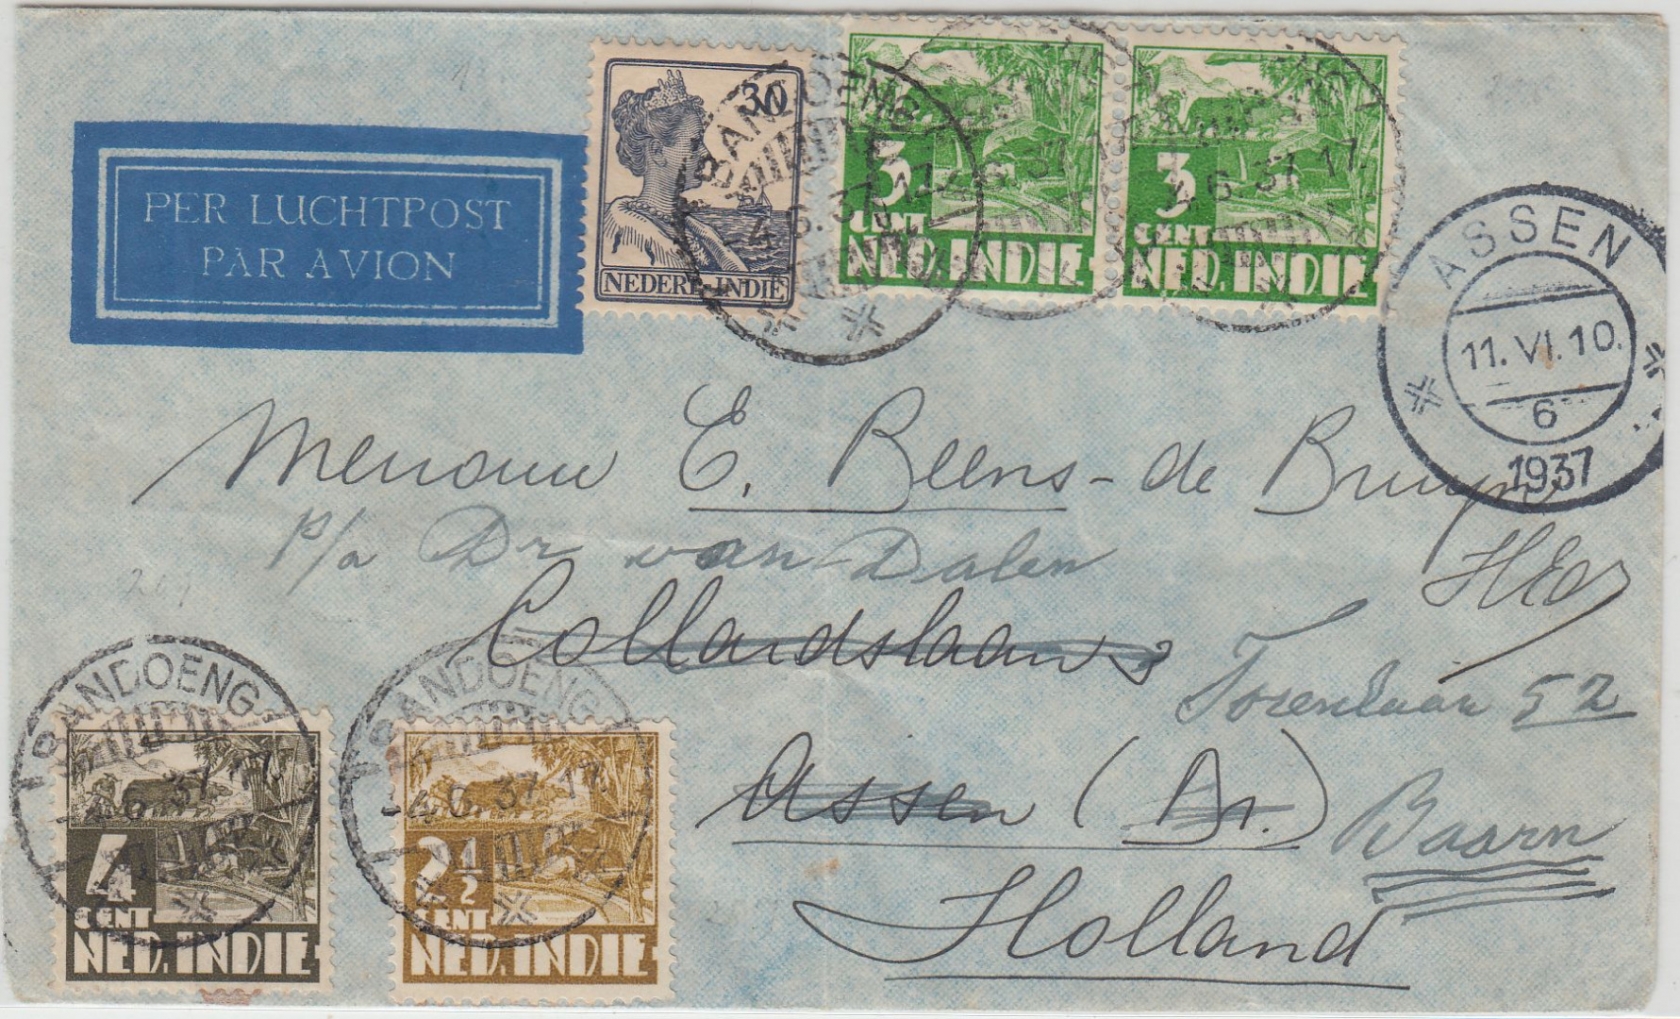 PER LUCHTPOST
PAR AVION
30
NEDERL-INDIË
BANDOENG
-4.6.37.17
3
CENT
NED. INDIE
3
CENT
NED. INDIE
4.6.37.17
ASSEN
11.VI.10.
6
1937
Mevrouw E. Beens-de Bruyn
p/a Dr van Dalen
Collardslaan
52
Assen (Dr.)
Baarn
Holland
BANDOENG
-4.6.37.17
4
CENT
NED. INDIE
BANDOENG
-4.6.37.17
2½
CENT
NED. INDIE